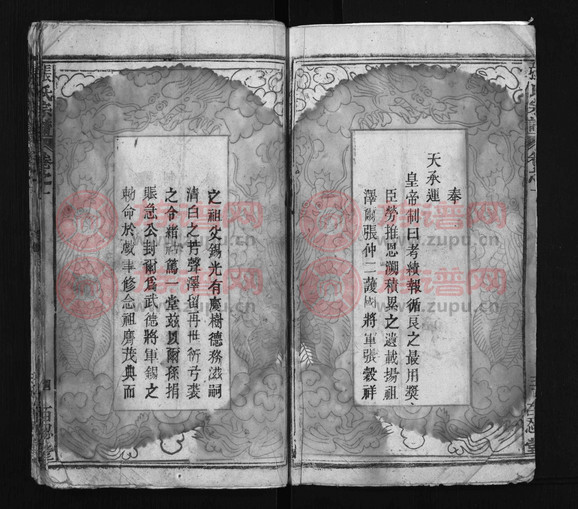 奉
天承運
皇帝制曰考績報循良之最用獎
臣勞推恩溯積累之遺載揚祖
澤爾張仲二護衛將軍張毅祥
之祖父錫光有慶樹德務滋嗣
清白之芳聲澤留再世衍弓裘
之令緒祜篤一堂茲以爾孫捐
賑急公封爾為武德將軍錫之
勅命於戲聿修念祖膺茂典而
張氏宗譜
卷之一
百忍堂
www.zupu.cn
www.zupu.cn
www.zupu.cn
www.zupu.cn